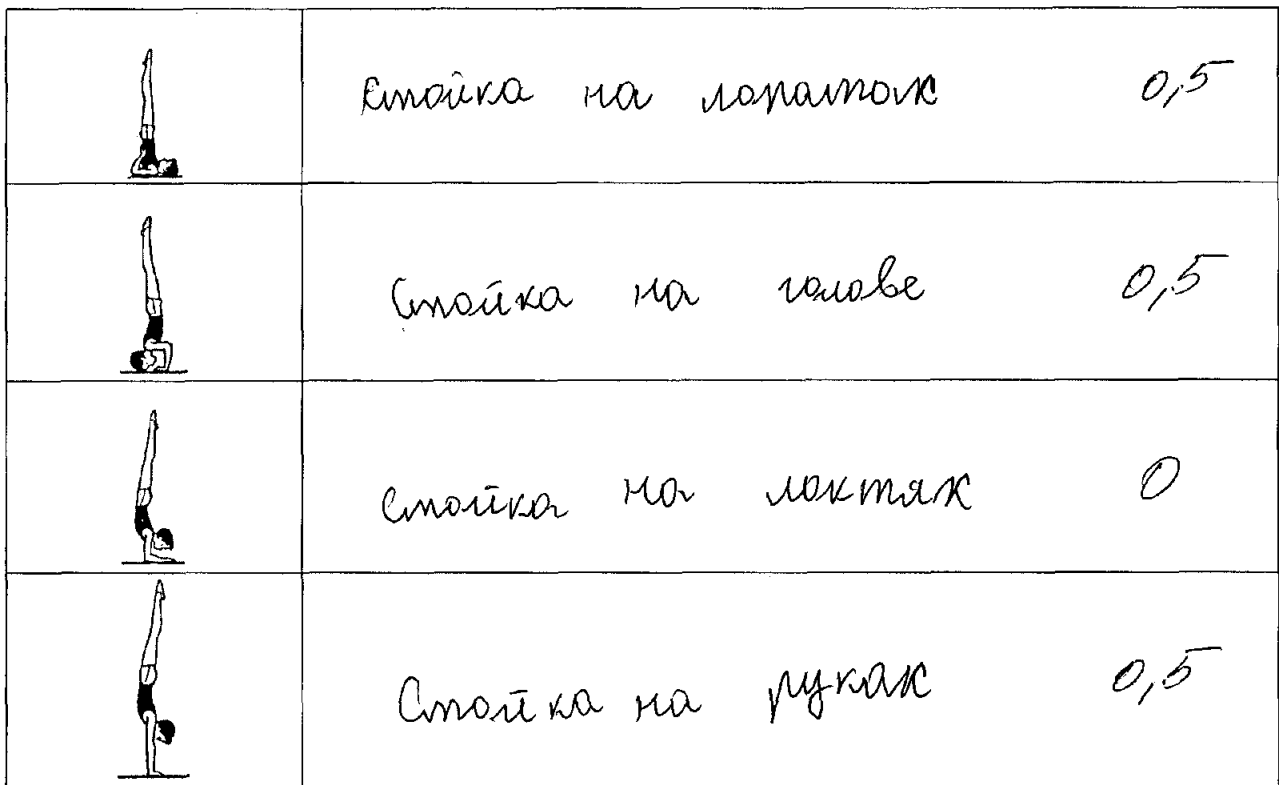 Стойка на лопатах 0,5
Стойка на голове 0,5
Стойка на локтях 0
Стойка на руках 0,5